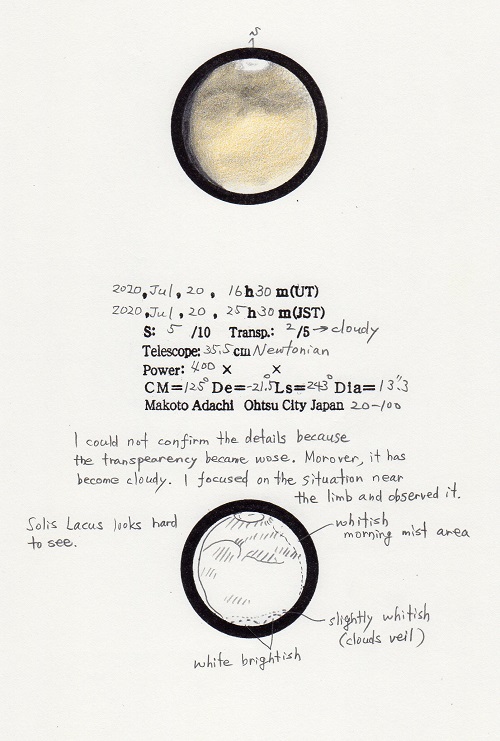 S
2020, Jul, 20, 16h30m(UT)
2020, Jul, 20, 25h30m(JST)
S: 5 /10 Transp.: 2/5→cloudy
Telescope: 35.5cm Newtonian
Power: 400× ×
CM=125° De=-21.5° Ls=243° Dia=13".3
Makoto Adachi Ohtsu City Japan 20-100
I could not confirm the details because
the transpearency became wose. Morover, it has
become cloudy. I focused on the situation near
the limb and observed it.
Solis Lacus looks hard
to see.
whitish
morning mist area
slightly whitish
(clouds veil)
white brightish